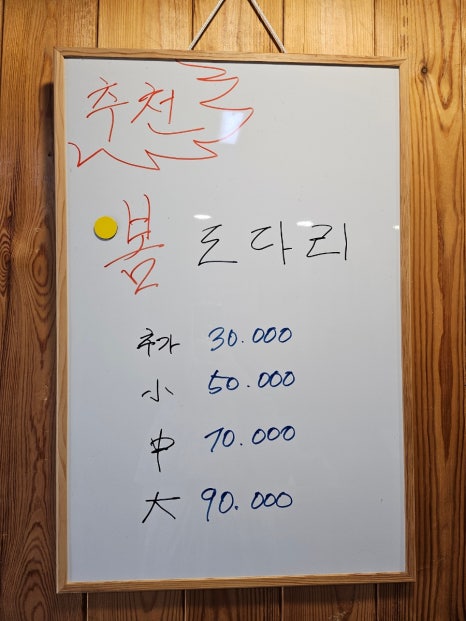 추천
봄 도다리
추가 30.000
小 50.000
中 70.000
大 90.000